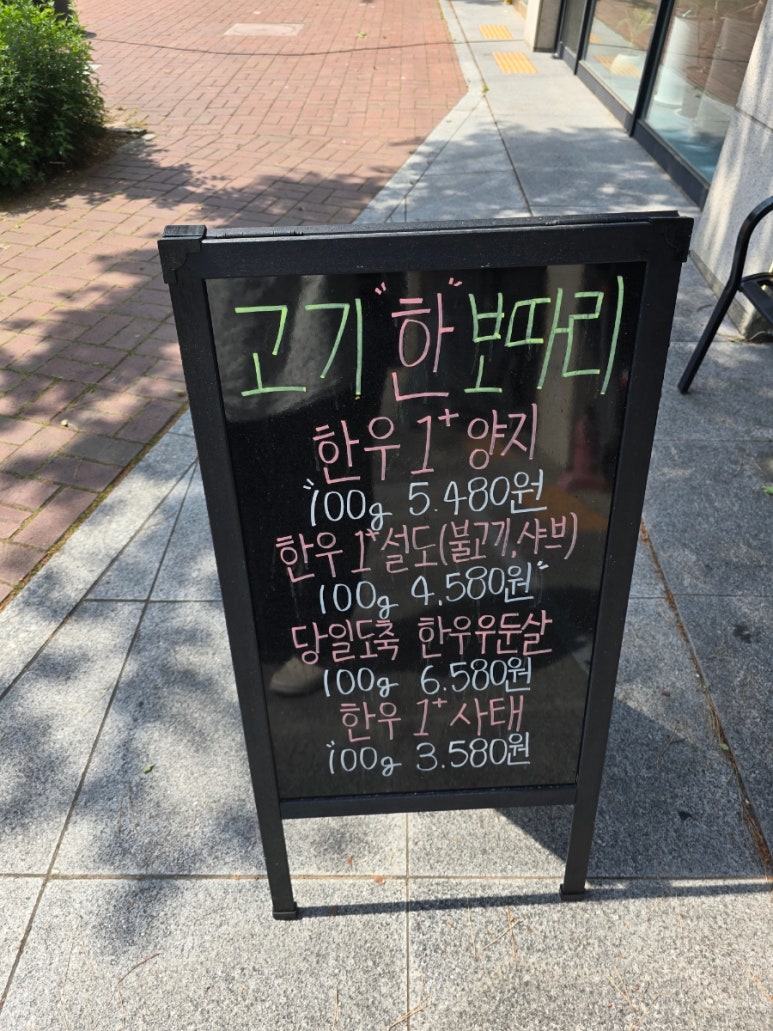 고기"한"보따리
한우 1⁺ 양지
"100g 5.480원
한우 1⁺설도(불고기,샤브)
100g 4,580원"
당일도축 한우우둔살
100g 6.580원
한우 1⁺사태
"100g 3.580원